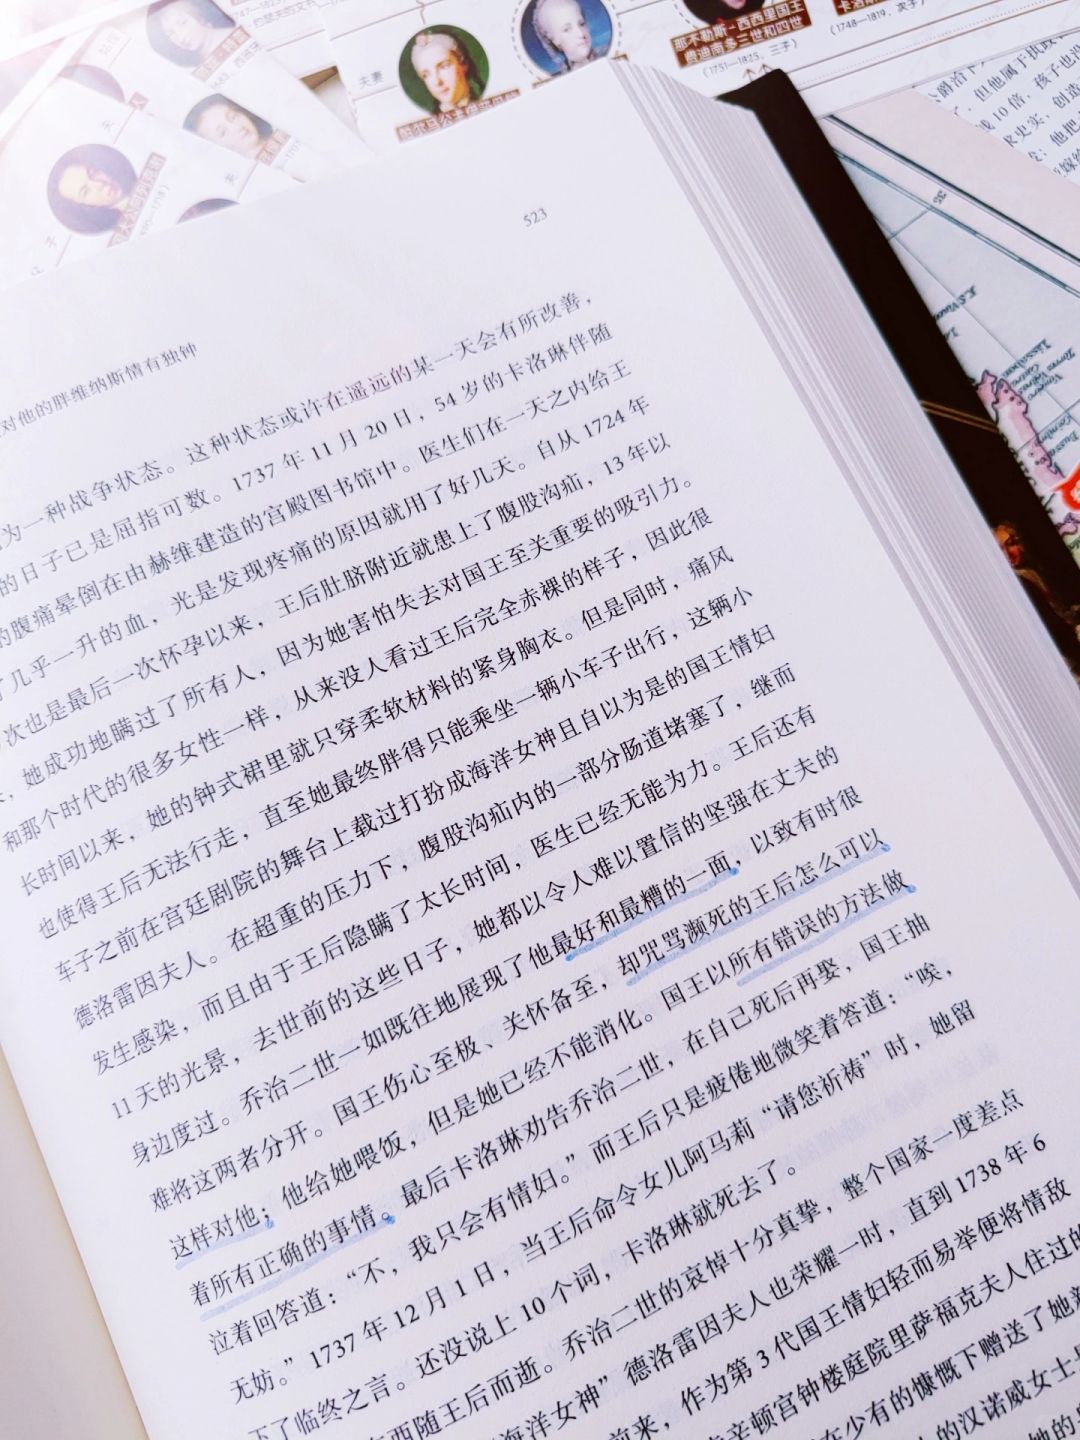 夫妻
帕尔马公主伊莎贝拉
那不勒斯-西西里国王
费迪南多三世和四世
(1751—1825，三子)
(1748—1819，次子)
523
对他的胖维纳斯情有独钟
为一种战争状态。这种状态或许在遥远的某一天会有所改善，
的日子已是屈指可数。1737 年 11 月 20 日，54 岁的卡洛琳伴随
的腹痛晕倒在由赫维建造的宫殿图书馆中。医生们在一天之内给王
了几乎一升的血，光是发现疼痛的原因就用了好几天。自从 1724 年
次也是最后一次怀孕以来，王后肚脐附近就患上了腹股沟疝，13 年以
，她成功地瞒过了所有人，因为她害怕失去对国王至关重要的吸引力。
和那个时代的很多女性一样，从来没人看过王后完全赤裸的样子，因此很
长时间以来，她的钟式裙里就只穿柔软材料的紧身胸衣。但是同时，痛风
也使得王后无法行走，直至她最终胖得只能乘坐一辆小车子出行，这辆小
车子之前在宫廷剧院的舞台上载过打扮成海洋女神且自以为是的国王情妇
德洛雷因夫人。在超重的压力下，腹股沟疝内的一部分肠道堵塞了，继而
发生感染，而且由于王后隐瞒了太长时间，医生已经无能为力。王后还有
11 天的光景，去世前的这些日子，她都以令人难以置信的坚强在丈夫的
身边度过。乔治二世一如既往地展现了他最好和最糟的一面，以致有时很
难将这两者分开。国王伤心至极、关怀备至，却咒骂濒死的王后怎么可以
这样对他；他给她喂饭，但是她已经不能消化。国王以所有错误的方法做
着所有正确的事情。最后卡洛琳劝告乔治二世，在自己死后再娶，国王抽
泣着回答道：“不，我只会有情妇。”而王后只是疲倦地微笑着答道：“唉，
无妨。”1737 年 12 月 1 日，当王后命令女儿阿马莉“请您祈祷”时，她留
下了临终之言。还没说上 10 个词，卡洛琳就死去了。
西随王后而逝。乔治二世的哀悼十分真挚，整个国家一度差点
海洋女神”德洛雷因夫人也荣耀一时，直到 1738 年 6
前来，作为第 3 代国王情妇轻而易举便将情敌
辛顿宫钟楼庭院里萨福克夫人住过的
在少有的慷慨下赠送了她
的汉诺威女士